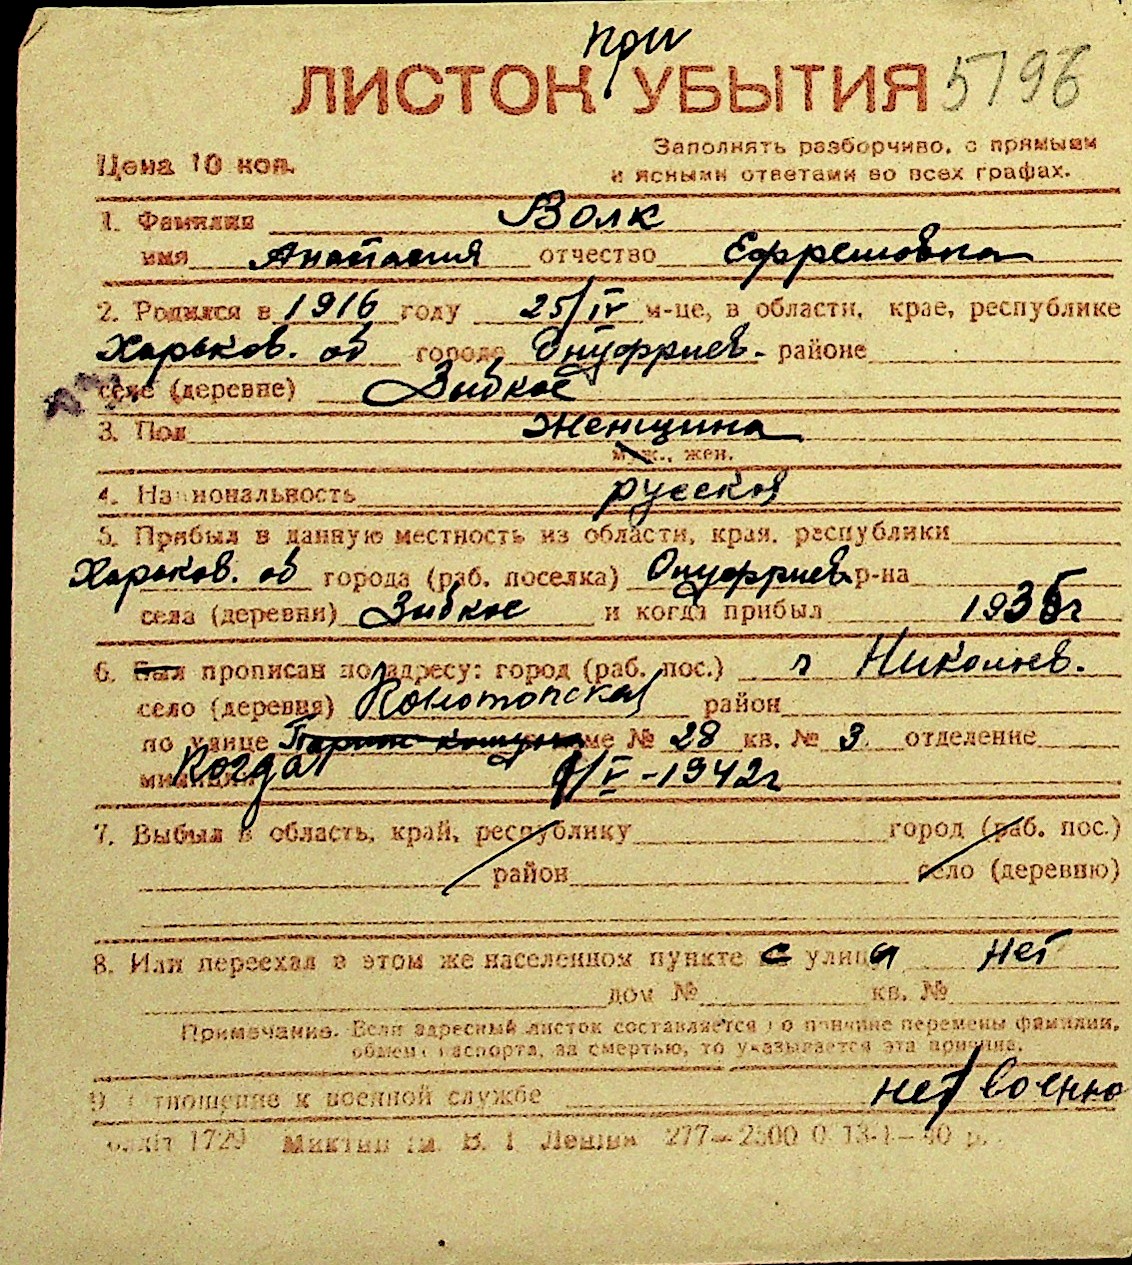 при
ЛИСТОК УБЫТИЯ 5796
Цена 10 коп.
Заполнять разборчиво, с прямыми
и ясными ответами во всех графах.
1. Фамилия Волк
имя Анастасия отчество Ефремовна
2. Родился в 1916 году 25/IV м-це, в области, крае, республике
Харьков. об городе Онуфриев- районе
селе (деревне) Зибкое
3. Пол Женщина
муж., жен.
4. Национальность русской
5. Прибыл в данную местность из области, края, республики
Харьков. об города (раб. поселка) Онуфриев. р-на
села (деревни) Зибкое и когда прибыл 1935г
6. Был прописан по адресу: город (раб. пос.) г Николаев.
село (деревня) Конотопская район
по улице Париж комуна доме № 28 кв. № 3 отделение
милиции Когда 9/V-1942г
7. Выбыл в область, край, республику город (раб. пос.)
район село (деревню)
8. Или переехал в этом же населенном пункте с улицы нет
дом № кв. №
Примечание. Если адресный листок составляется по причине перемены фамилии,
обмена паспорта, за смертью, то указывается эта причина.
9. Отношение к военной службе нет военно
1729 им. В. І Леніна 277—2500 0 13-I—40 р.